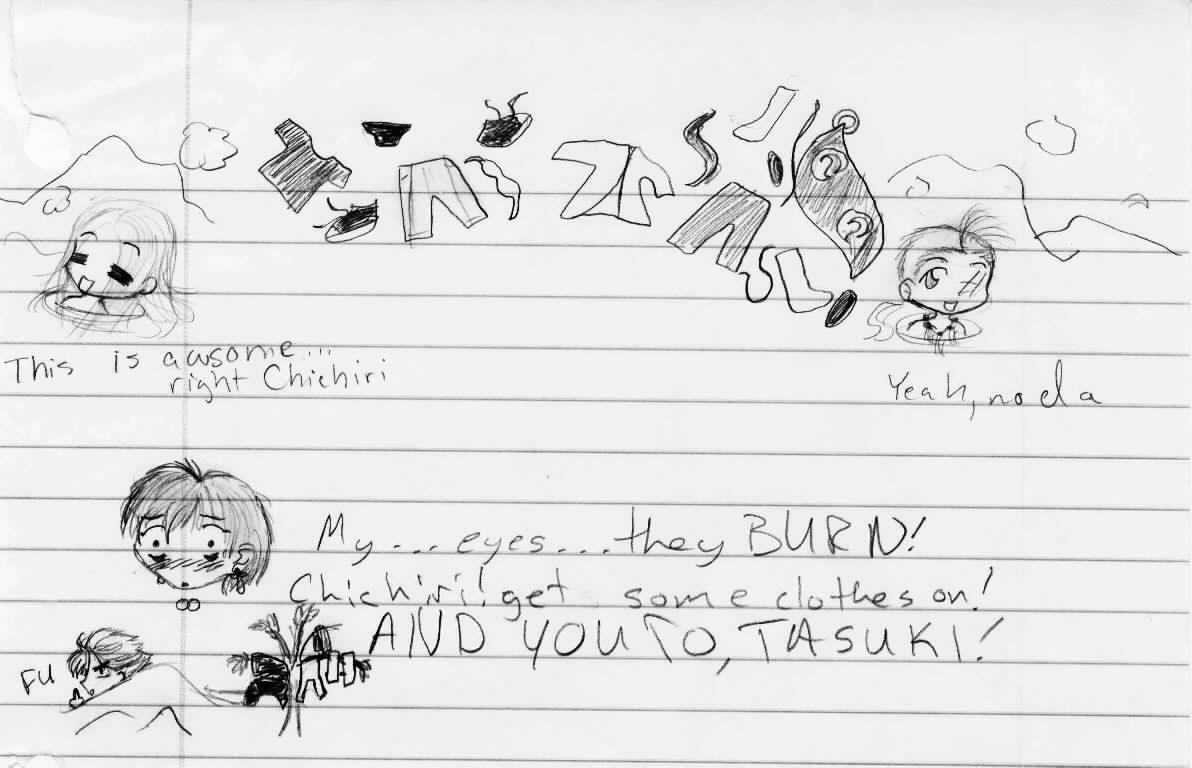 This is awsome...
right Chichiri
Yeah, no da
My... eyes... they BURN!
Chichiri! get some clothes on!
AND YOU TO, TASUKI!
FU